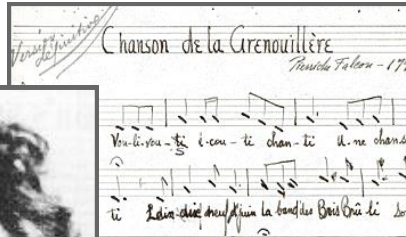 Version définitive
Chanson de la Grenouillère
Pierriche Falcon - 17
Vou-li-vou-ti é-cou-ti chan-ti U-ne chans
ti L dix-dix neuf d'juin la band' des Bois Brû-li